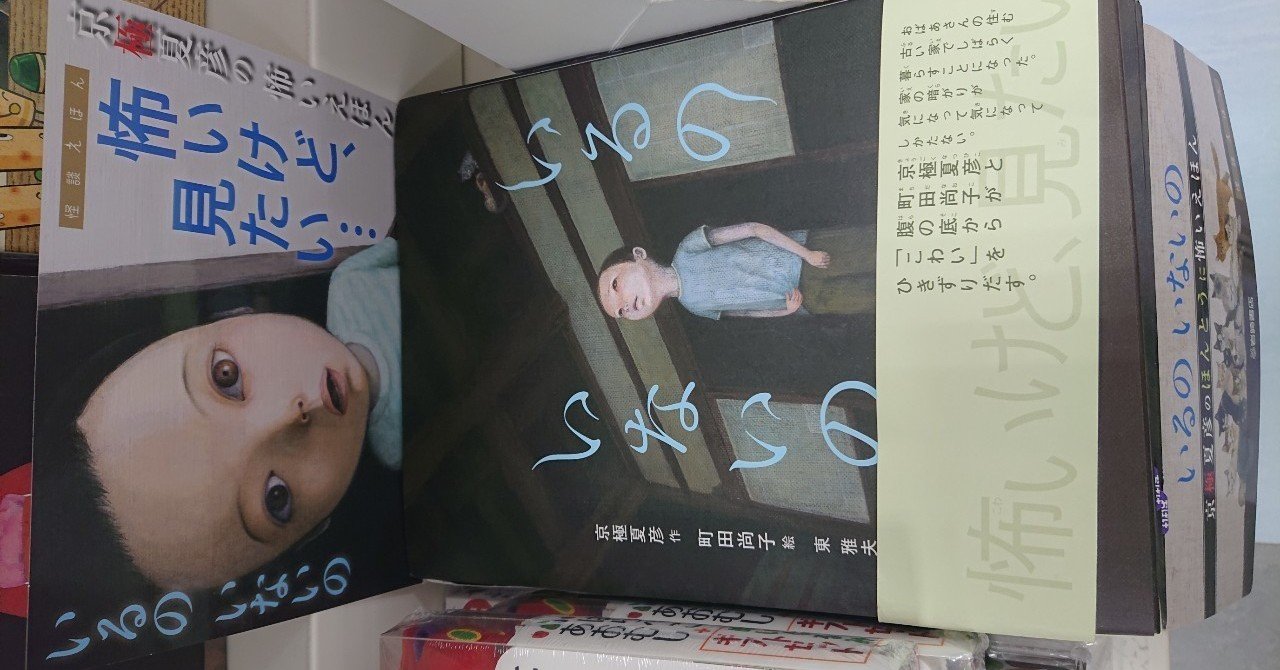 京極夏彦の怖いえほん
怪談えほん
怖いけど、
見たい…
いるの
いないの
いるの
いないの
京極夏彦 作
町田尚子 絵
東 雅夫
おばあさんの住む
古い家でしばらく
暮らすことになった。
家の暗がりが
気になって気になって
しかたない。
京極夏彦と
町田尚子が
腹の底から
「こわい」を
ひきずりだす。
怖いけど、見たい
いるの いないの
京極夏彦のほんとうに怖いえほん
あおむし
ギフトセット
あおむし
ギフトセット